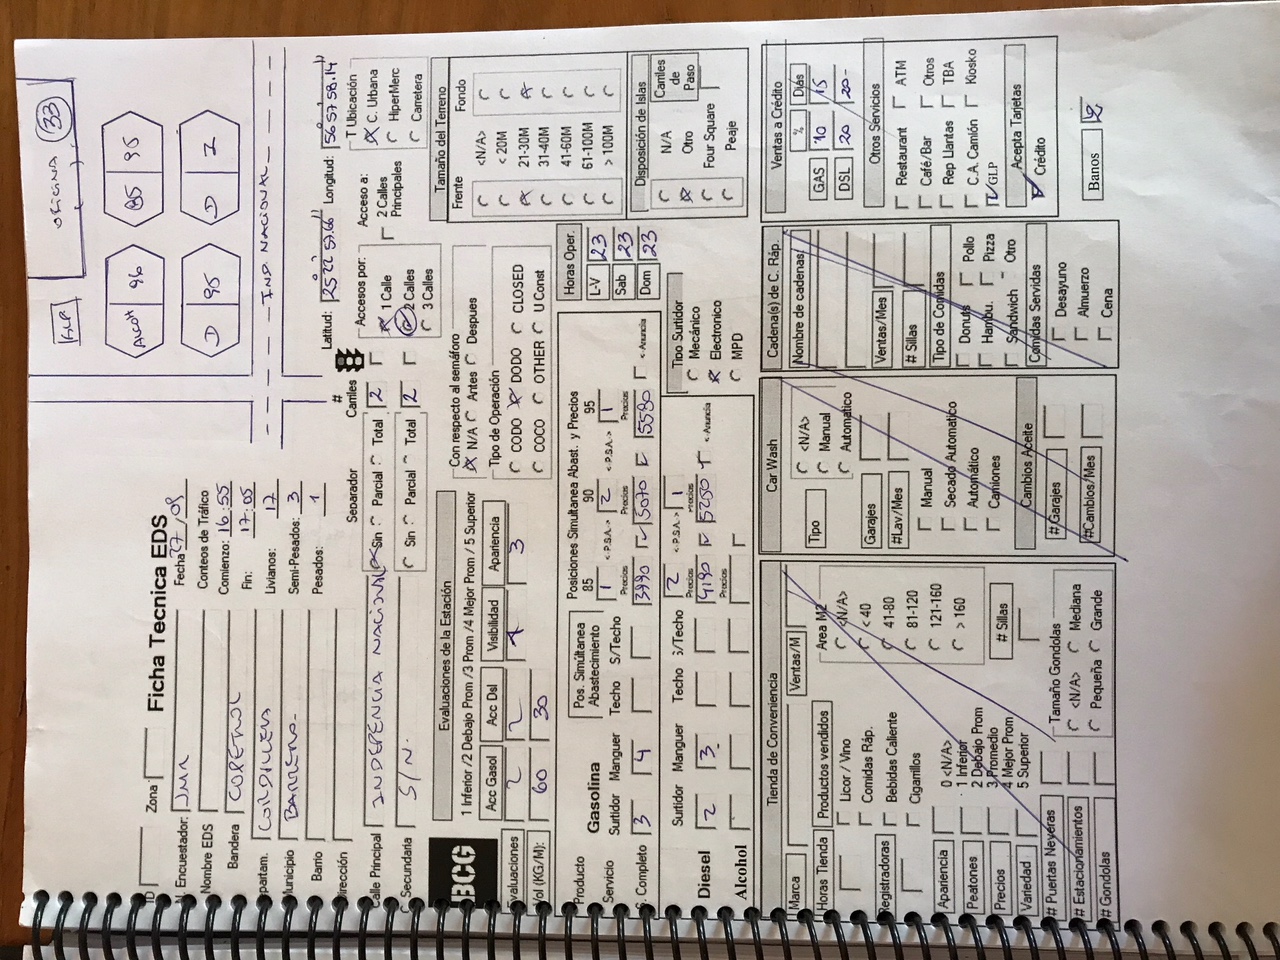 GLP
OFICINA 33
Alcoh 96
85 95
D 95
D 2
IND. NACIONAL
ID Zona:
Ficha Tecnica EDS
N. Encuestador: JMR
Fecha 27/09
Nombre EDS
Conteos de Tráfico
Bandera COPETROL
Comienzo: 16:55
Fin: 17:05
Departam. CORDILLERA
Livianos: 17
Municipio BARRERO
Semi-Pesados: 3
Barrio
Pesados: 1
Dirección
Latitud: 25 22 57.66 Longitud: 56 57 58.14
Separador # Carriles
Calle Principal INDEPENCIA NACIONAL
Sin Parcial Total 2
C Secundaria S/N.
Sin Parcial Total 2
Accesos por:
1 Calle
2 Calles
3 Calles
Acceso a:
2 Calles Principales
T Ubicación
C. Urbana
HiperMerc
Carretera
BCG
Evaluaciones de la Estación
1 Inferior /2 Debajo Prom /3 Prom /4 Mejor Prom / 5 Superior
Acc Gasol Acc Dsl Visibilidad Apariencia
Evaluaciones 2 2 4 3
Vol (KG/M): 60 30
Con respecto al semáforo
N/A Antes Despues
Tipo de Operación
CODO DODO CLOSED
COCO OTHER U Const
Tamaño del Terreno
Frente Fondo
<N/A>
< 20M
21-30M
31-40M
41-60M
61-100M
> 100M
Producto Gasolina
Pos. Simultanea Abastecimiento
Posiciones Simultanea Abast. y Precios
85 90 95
Servicio Surtidor Manguer Techo S/Techo
1 <-P.S.A.-> 2 <-P.S.A.-> 1
Precios Precios Precios
S. Completo 3 4
3990 5070 5590 <-Anuncia
Surtidor Manguer Techo S/Techo
2 <-P.S.A.-> 1
Precios Precios
Diesel 2 3
4190 5250 <-Anuncia
Alcohol
Horas Oper.
L-V 23
Sab 23
Dom 23
Tipo Surtidor
Mecánico
Electronico
MPD
Disposición de Islas
N/A
Otro
Four Square
Peaje
Carriles de Paso
Tienda de Conveniencia
Marca
Ventas/M
Horas Tienda
Productos vendidos
Licor / Vino
Comidas Ráp.
Registradoras
Bebidas Caliente
Cigarillos
Area M2
<N/A>
< 40
41-80
81-120
121-160
> 160
Apariencia
Peatones
Precios
Variedad
0 <N/A>
1 Inferior
2 Debajo Prom
3 Promedio
4 Mejor Prom
5 Superior
# Sillas
# Puertas Neveras
# Estacionamientos
# Gondolas
Tamaño Gondolas
<N/A> Mediana
Pequeña Grande
Car Wash
Tipo
<N/A>
Manual
Automatico
Garajes
#Lav/Mes
Manual
Secado Automatico
Automático
Camiones
Cambios Aceite
# Garajes
#Cambios/Mes
Cadena(s) de C. Ráp.
Nombre de cadenas/
Ventas/Mes
# Sillas
Tipo de Comidas
Donuts Pollo
Hambu. Pizza
Sandwich Otro
Comidas Servidas
Desayuno
Almuerzo
Cena
Ventas a Crédito
% Días
GAS 10 15
DSL 20 20-
Otros Servicios
Restaurant ATM
Café/Bar Otros
Rep Llantas TBA
C.A. Camión Kiosko
GLP
Acepta Tarjetas
Crédito
Banos